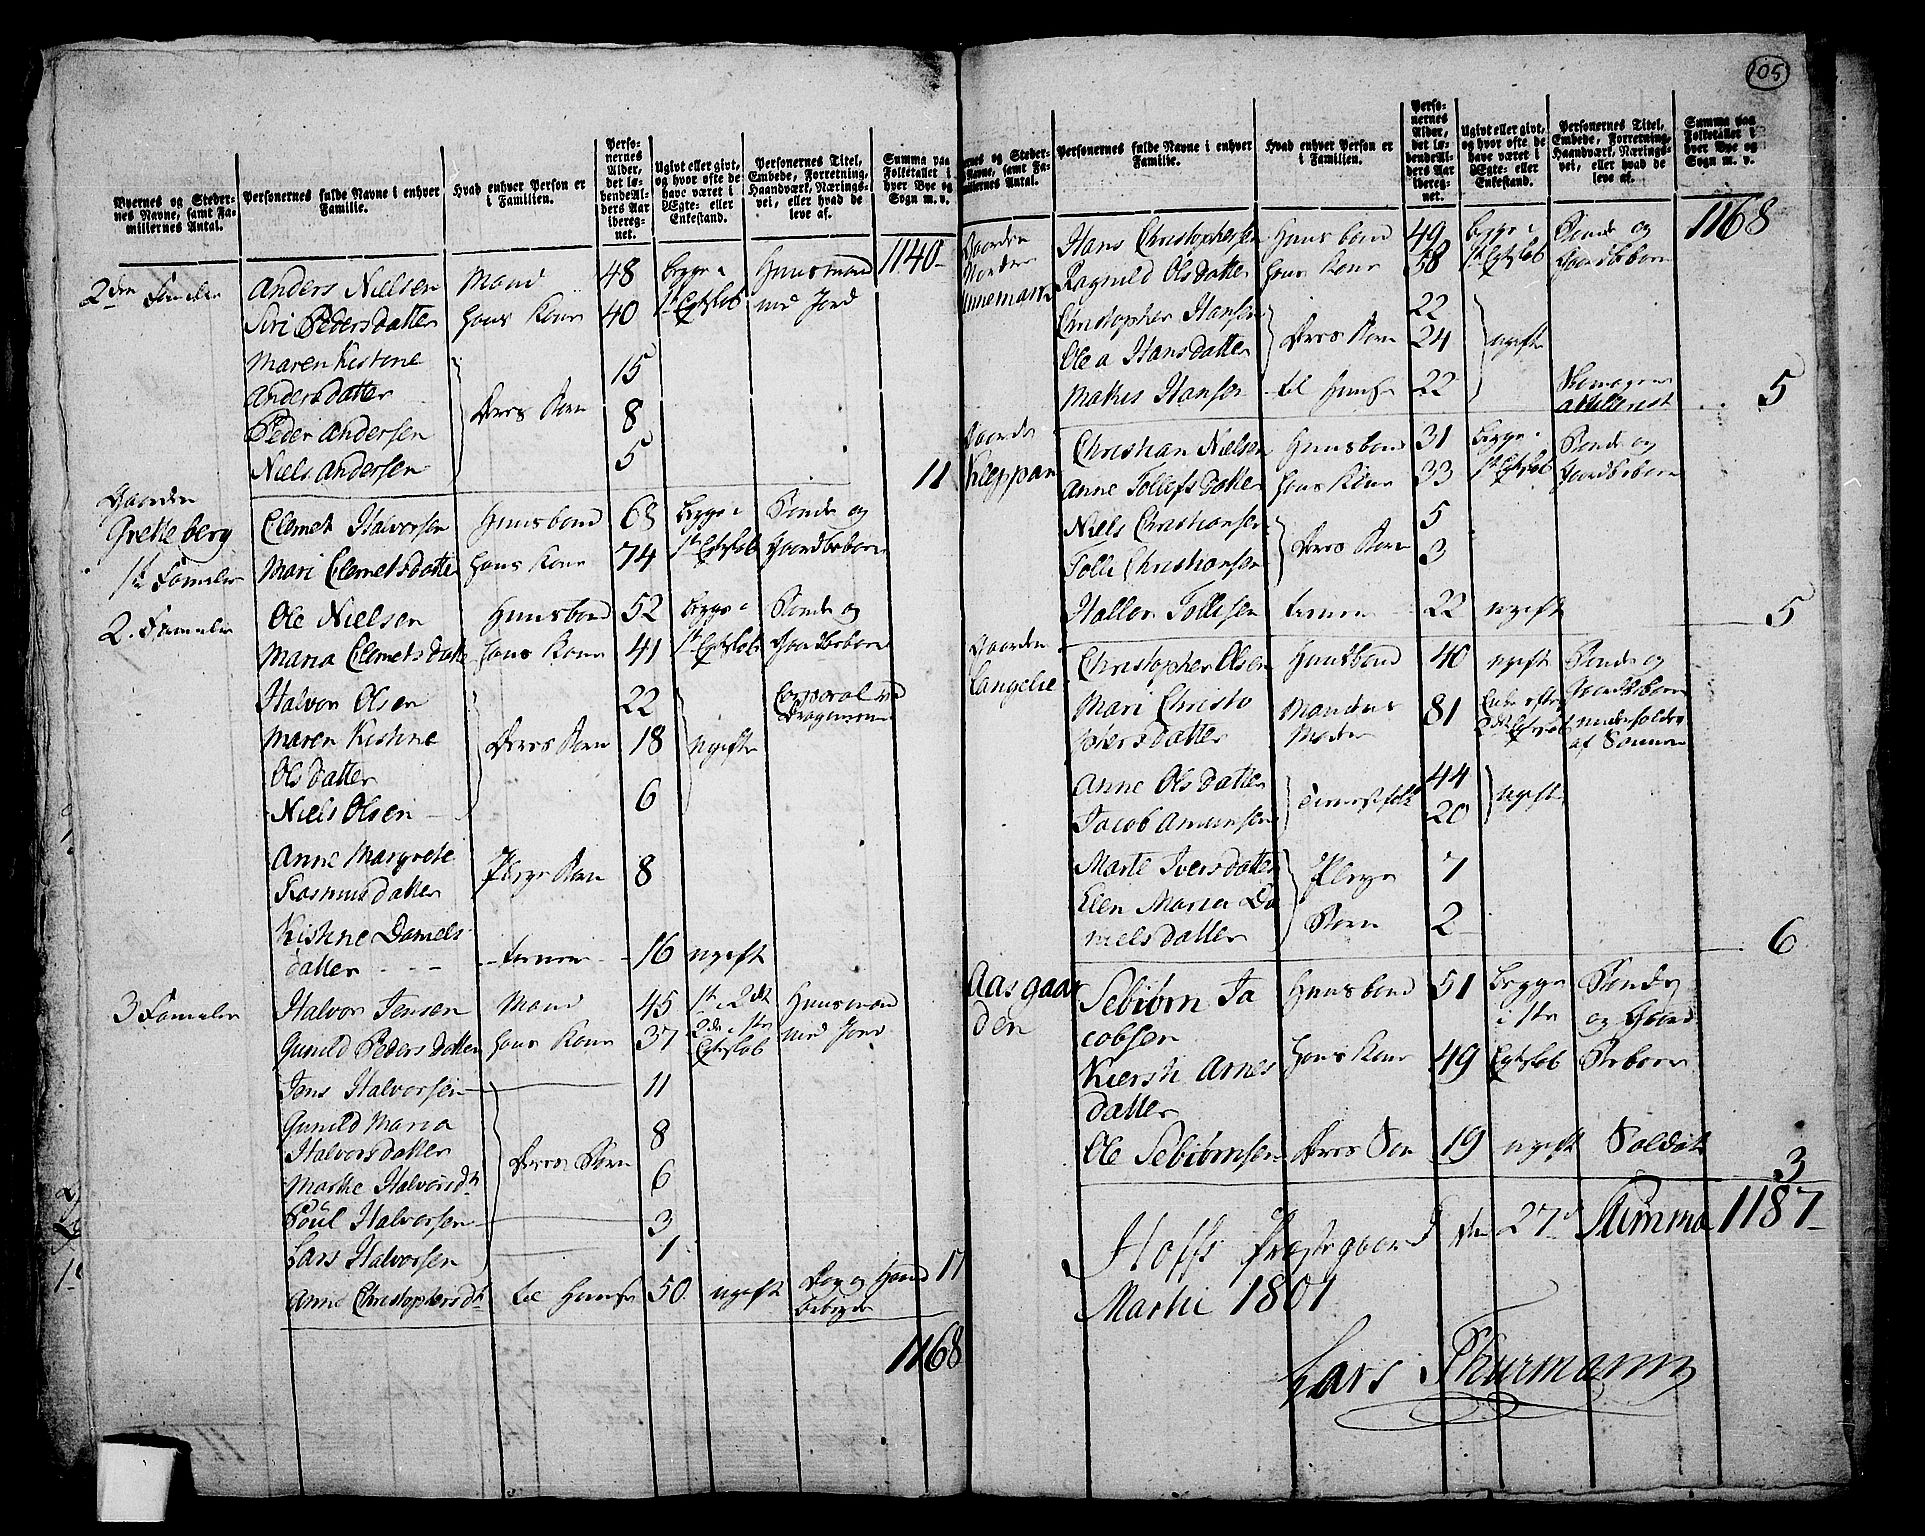 105
Byernes og Steder-
nes Navne, samt Fa-
miliernes Antal.
Personernes fulde Navne i enhver
Familie.
Hvad enhver Person er
i Familien.
Perso-
nernes
Alder,
det lø-
bende Al-
ders Aar
ibereg-
net.
Ugivt eller givt,
og hvor ofte de
have været i
Ægte- eller
Enkestand.
Personernes Titel,
Embede, Forretning,
Haandværk, Nærings-
vei, eller hvad de
leve af.
Summa paa
Folketallet i
hver Bye og
Sogn m. v.
1140
2den Familie Anders Nielsen Mand 48 begge i Huusmand
Siri Pedersdatter hans Kone 40 1ste Egteskab med Jord
Maren Kistine
Andersdatter 15
Peder Andersen deres Børn 8
Niels Andersen 5
11
Gaarden
Gretteberg Clemet Halvorsen Huusbond 68 begge i Bonde og
1ste Familie Mari Clemetsdatter hans Kone 74 1ste Egteskab Gaardbeboer
2. Familie Ole Nielsen Huusbond 52 begge i Bonde og
Maria Clemetsdatter hans Kone 41 1ste Egteskab Gaardbeboer
Halvor Olsen 22 Corporal ved
Dragonerne
Maren Kistine deres Børn 18 ugifte
Olsdatter
Niels Olsen 6
Anne Margrete
Rasmusdatter Pleye Børn 8
Kistine Daniels
datter - - - 16 ugift
3 Familie Halvor Jensen Mand 45 1ste i 2det Huusmand
Gunild Pedersdatter hans Kone 37 2den i 1ste med Jord
Egteskab
Jens Halvorsen 11
Gunild Maria
Halvorsdatter 8
Marthe Halvorsdtr deres Børn 6
Poul Halvorsen 3
Lars Halvorsen 1
Anne Christophersdtr til Huuse 50 ugift
17
1168
Byernes og Steder-
nes Navne, samt Fa-
miliernes Antal.
Personernes fulde Navne i enhver
Familie.
Hvad enhver Person er
i Familien.
Perso-
nernes
Alder,
det lø-
bende Al-
ders Aar
ibereg-
net.
Ugivt eller givt,
og hvor ofte de
have været i
Ægte- eller
Enkestand.
Personernes Titel,
Embede, Forretning,
Haandværk, Nærings-
vei, eller hvad de
leve af.
Summa paa
Folketallet i
hver Bye og
Sogn m. v.
1168
Gaarden Hans Christophersen Huusbond 49 begge i Bonde og
Ragnild Olsdatter hans Kone 58 1ste Egteskab Gaardbeboer
Christopher Hansen 22
Olea Hansdatter deres Børn 24 ugifte
Mathis Hansen til Huuse 22
5
Gaarden Christian Nielsen Huusbond 31 begge i Bonde og
Kleppan Anne Tollefsdatter hans Kone 33 1ste Egteskab Gaardbeboer
Niels Christiansen 5
Tolle Christiansen deres Børn 3
Hallvor Tollefsen 22 ugift
5
Gaarden Christopher Olsen Huusbond 40 ugift Bonde og
Langelie Gaardbeboer
Mari Christo Mandens 81 Enke efter underholdes
phersdatter Moder Egteskab af Sønnen
Anne Olsdatter 44
Jacob Amunsen Tienestefolk 20 ugifte
Marte Iversdatter Pleye 7
Elen Maria Da
nielsdatter Børn 2
6
Aasgaar Sebiørn Ja Huusbond 51 begge Bonde
den cobsen i 1ste og Gaard
Kiersti Arnes hans Kone 49 Egteskab Beboer
datter
Ole Sebiørnsen deres Søn 19 ugift Soldat
3
Summa 1187
Hoffs Præstegaard den 27de
Martii 1801
Lars Thurmann